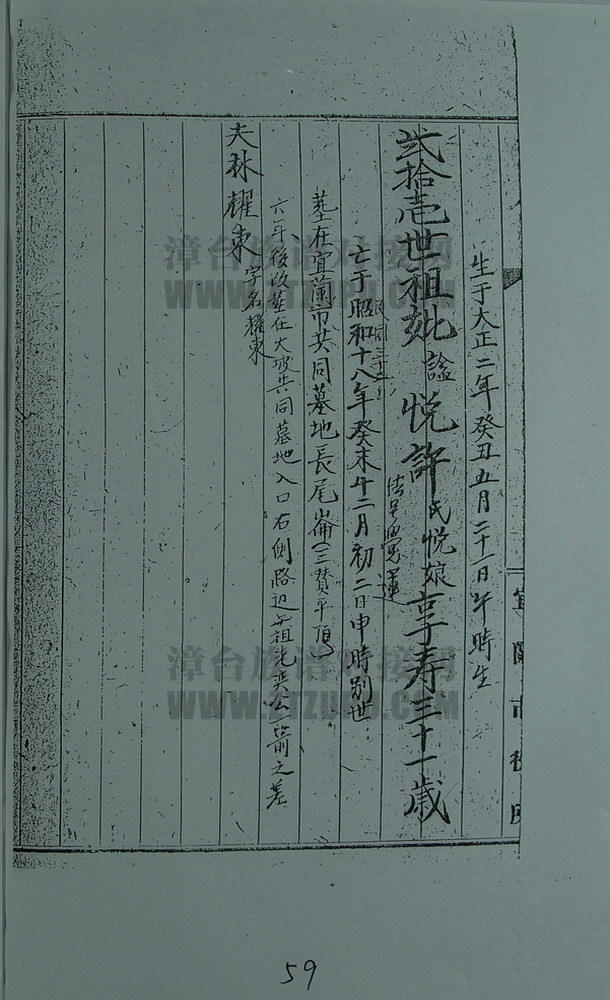 生于大正二年癸丑五月二十一日午時生
弍拾壱世祖妣諡悦許氏悦娘享寿三十一歳
法号
亡于昭和十八年癸未十二月初二日申時別世
民国三十二
墓在宜蘭市共同墓地長尾崙(三賛平頂)
六年後改葬在大坡共同墓地入口右側路辺
祖先奕公
前之
夫林耀東
字名耀東
宜蘭市役所
漳台族谱对接网
WWW.ZTZUPU.COM
漳台族谱对接网
WWW.ZTZUPU.COM
59